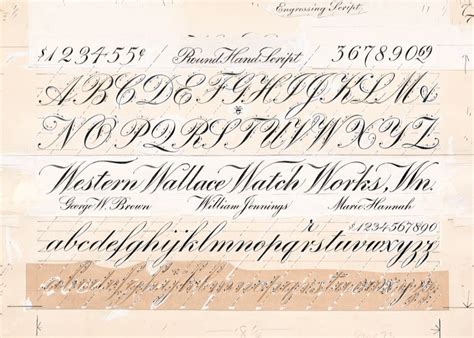 Engrossing Script.
$123455¢ Round Hand Script 367890
A B C D E F G H I J K L M &
N O P Q R S T U V W X Y Z
Western Wallace Watch Works, Wn.
George W. Brown William Jennings Marie Hannah
$1234567890
abcdefghijklmnopqrstuvwxyzz